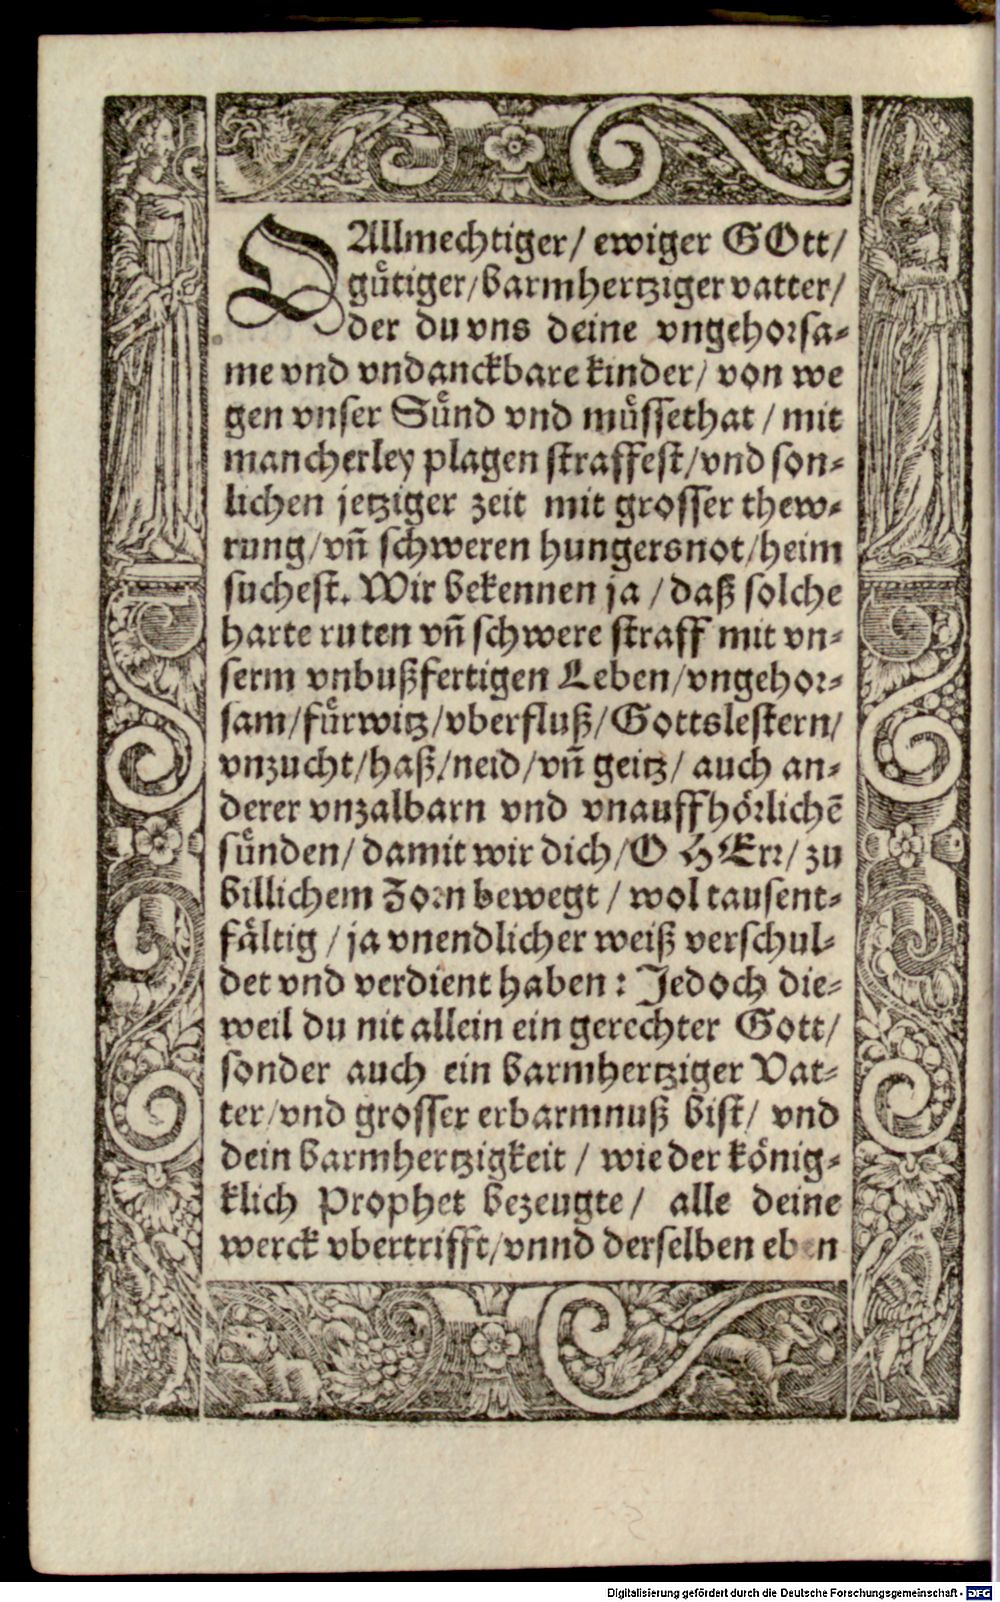 O Allmechtiger/ ewiger GOtt/
gůtiger/ barmhertziger vatter/
der du vns deine vngehorsa⸗
me vnd vndanckbare kinder/ von we
gen vnser Sůnd vnd můssethat / mit
mancherley plagen straffest/ vnd son⸗
lichen jetziger zeit mit grosser thew⸗
rung/ vñ schweren hungersnot/ heim
suchest. Wir bekennen ja / daß solche
harte ruten vñ schwere straff mit vn⸗
serm vnbußfertigen Leben/ vngehor⸗
sam/ fůrwitz/ vberfluß/ Gottslestern/
vnzucht/ haß/ neid/ vñ geitz/ auch an⸗
derer vnzalbarn vnd vnauffhoͤrlichẽ
sůnden/ damit wir dich/ O HErr/ zu
billichem Zorn bewegt / wol tausent⸗
faͤltig / ja vnendlicher weiß verschul⸗
det vnd verdient haben: Jedoch die⸗
weil du nit allein ein gerechter Gott/
sonder auch ein barmhertziger Vat⸗
ter/ vnd grosser erbarmnuß bist/ vnd
dein barmhertzigkeit / wie der koͤnig⸗
klich Prophet bezeugte/ alle deine
werck vbertrifft/ vnnd derselben eben
Digitalisierung gefördert durch die Deutsche Forschungsgemeinschaft - DFG